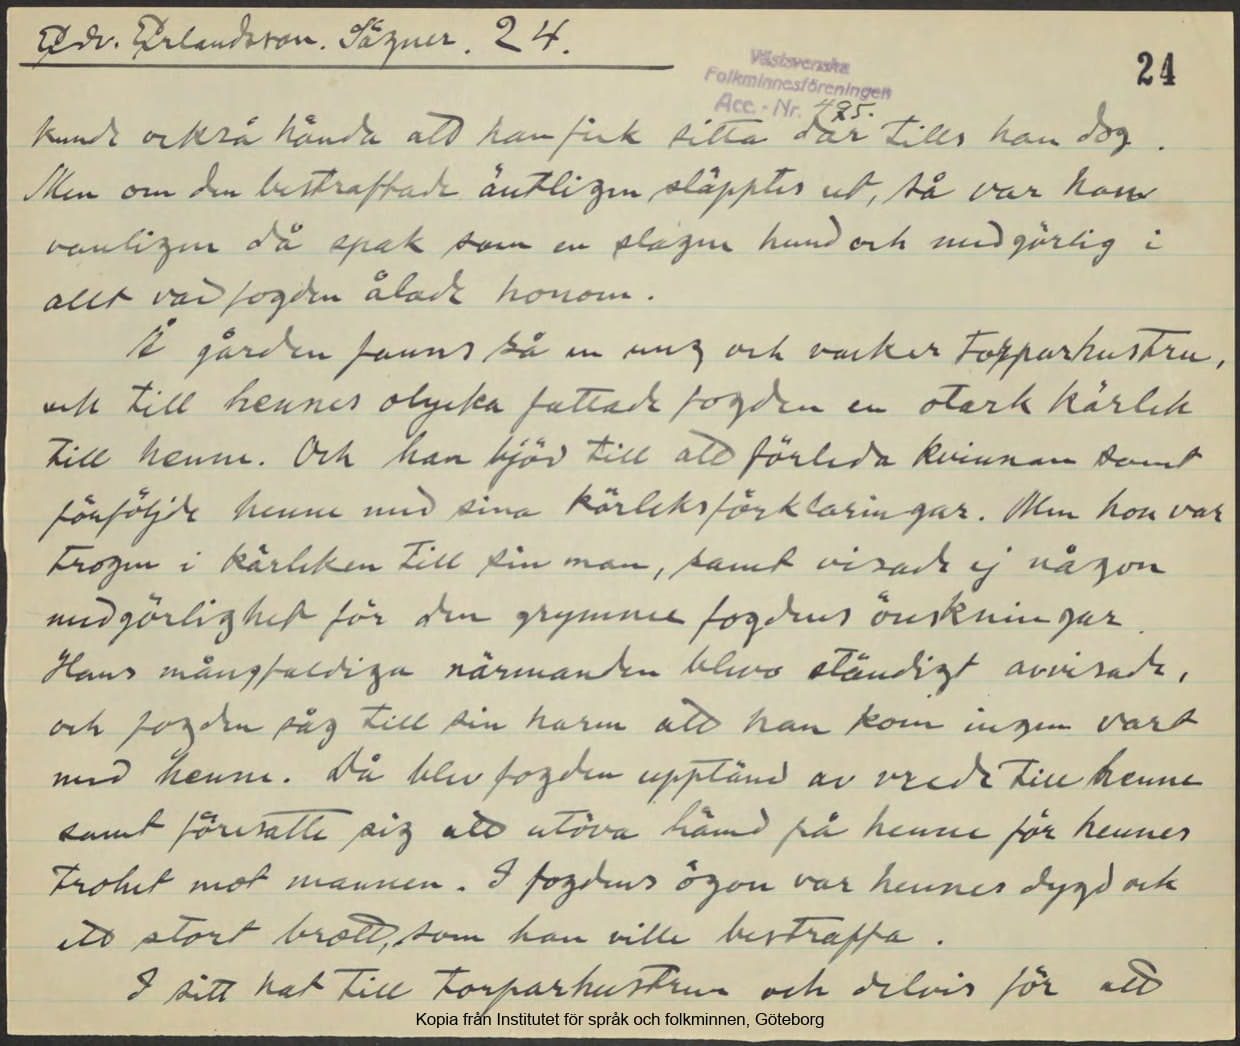 Edv. Erlandsson. Sägner. 24.
24
Västsvenska
Folkminnesföreningen
Acc.-Nr. 495.
kunde också hända att han fick sitta där tills han dog.
Men om den bestraffade äntligen släpptes ut, så var han
vanligen då spak som en slagen hund och medgörlig i
allt vad fogden ålade honom.
Å gården fanns så en ung och vacker torparhustru,
och till hennes olycka fattade fogden en stark kärlek
till henne. Och han bjöd till att förleda kvinnan samt
förföljde henne med sina kärleksförklaringar. Men hon var
trogen i kärleken till sin man, samt visade ej någon
medgörlighet för den grymme fogdens önskningar.
Hans mångfaldiga närmanden blevo ständigt avvisade,
och fogden såg till sin harm att han kom ingen vart
med henne. Då blev fogden upptänd av vrede till henne
samt föresatte sig att utöva hämd på henne för hennes
trohet mot mannen. I fogdens ögon var hennes dygd ock
ett stort brott, som han ville bestraffa.
I sitt hat till torparhustrun och delvis för att
Kopia från Institutet för språk och folkminnen, Göteborg